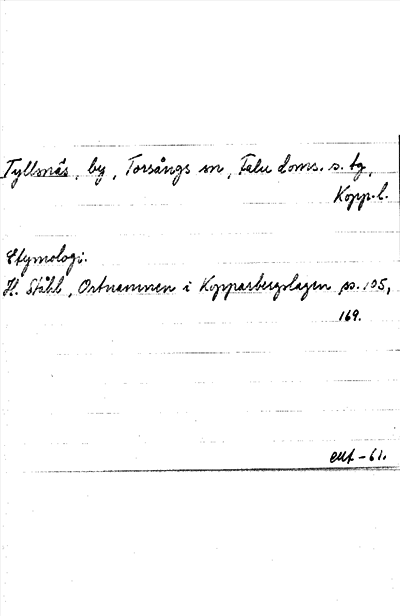 Tyllsnäs, by, Torsångs sn, Falu doms. s. tg,
Kopp. l.
Etymologi.
H. Ståhl, Ortnamnen i Kopparbergslagen ss. 105,
169.
-61.